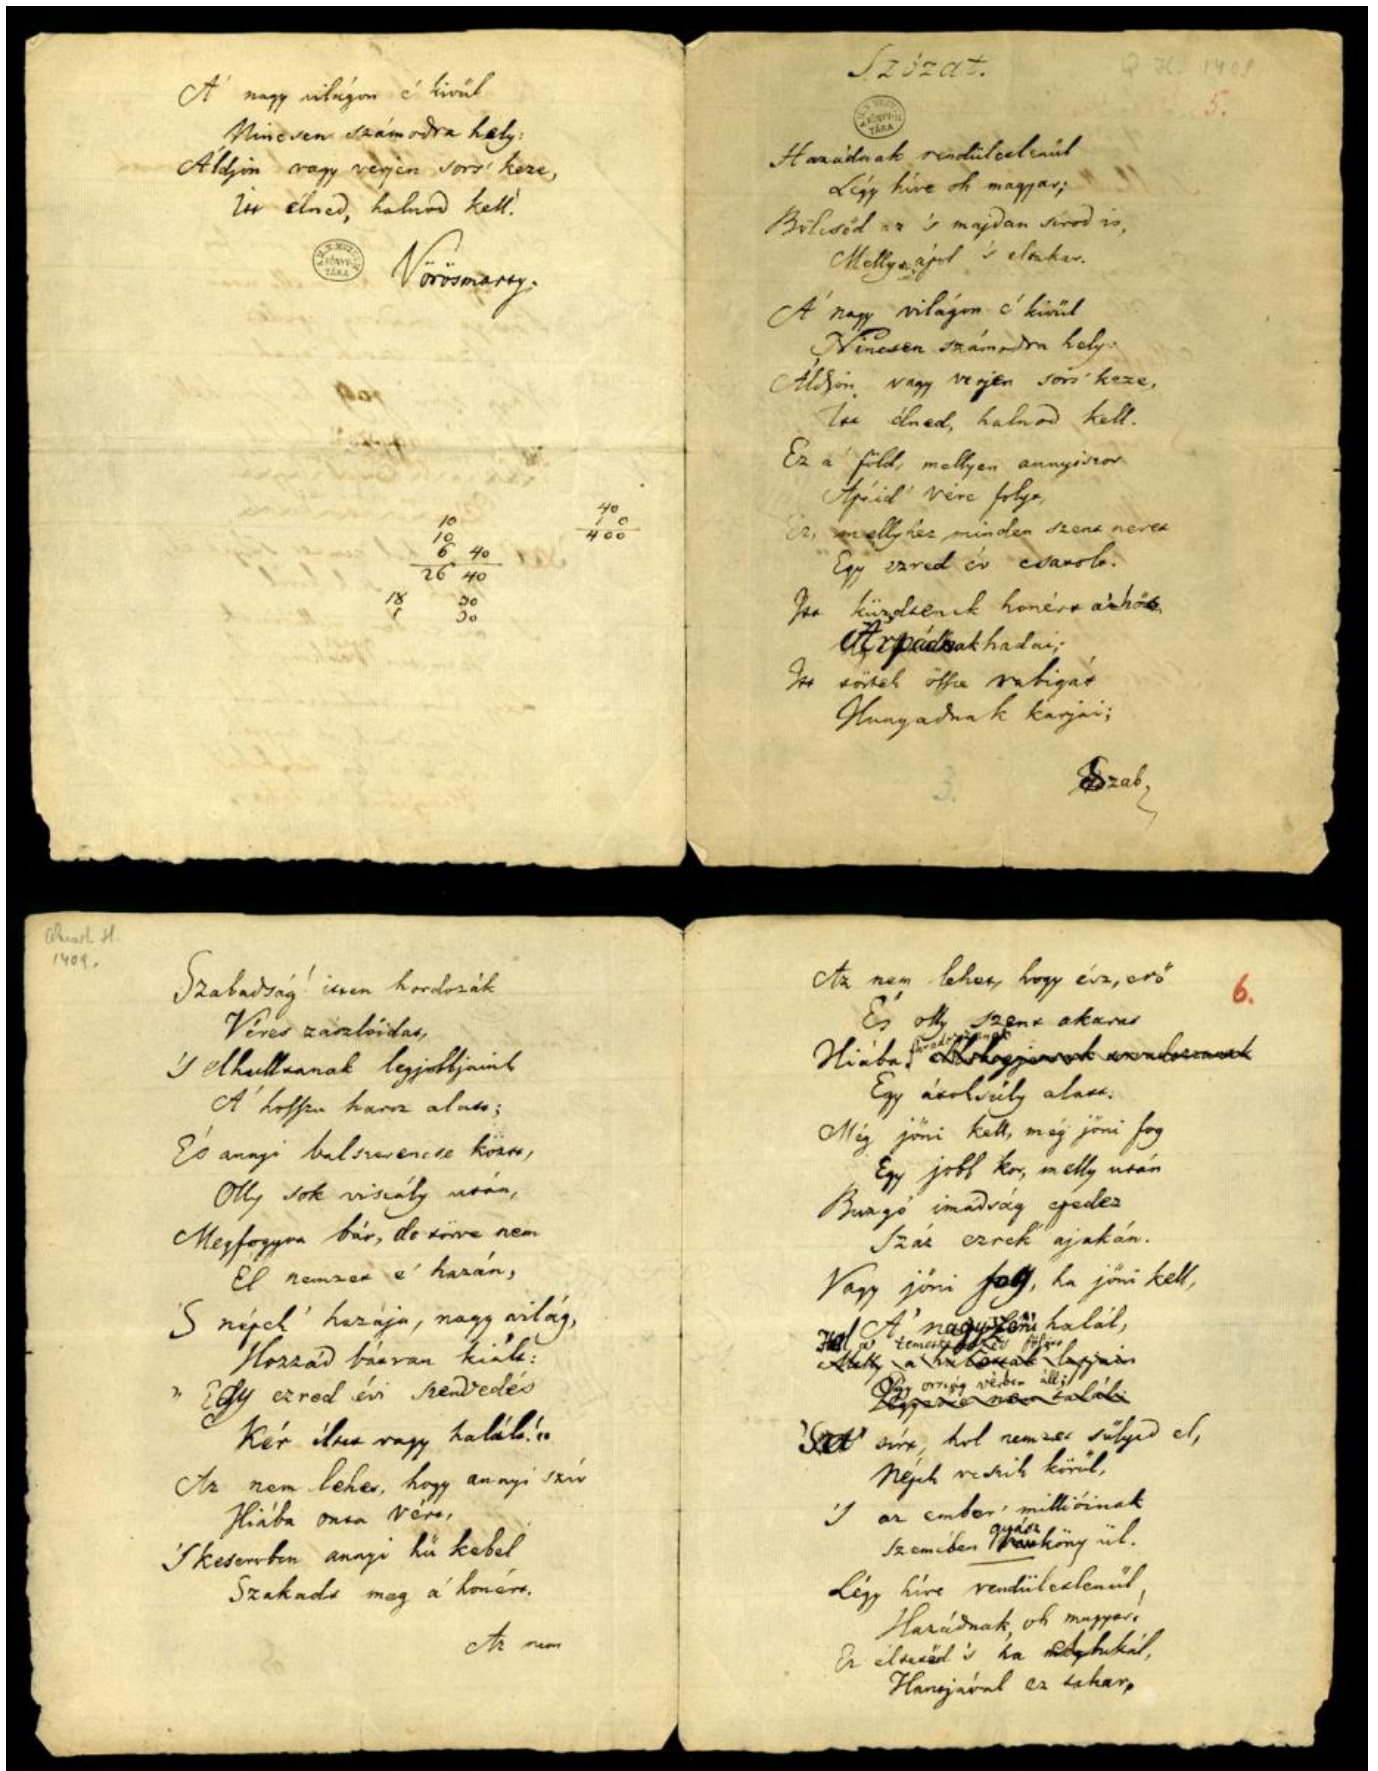 A' nagy világon e' kivül
Nincsen számodra hely:
Áldjon vagy verjen sors' keze,
Itt élned, halnod kell!
M. N. MUZEUM
KÖNYV-
TÁRA
Vörösmarty.
10
10
6 40
26 40
18 30
30
40
10
400
Szózat.
Q. H. 1409
5.
KÖNYV-
TÁRA
Hazádnak rendületlenül
Légy híve oh magyar;
Bölcsőd az 's majdan sírod is,
Melly ápol 's eltakar.
A' nagy világon e' kivül
Nincsen számodra hely:
Áldjon vagy verjen sors' keze,
Itt élned, halnod kell.
Ez a' föld, mellyen annyiszor
Apáid' vére folyt,
Ez, mellyhez minden szent nevet
Egy ezred év csatolt.
Itt küzdtenek honért a' hős
Árpádnak hadai;
Itt törtek össze rabigát
Hunyadnak karjai;
3.
Szab,
Quart. H.
1409.
Szabadság! itten hordozák
Véres zászlóidat,
'S elhulltanak legjobbjaink
A' hosszu harcz alatt;
És annyi balszerencse közt,
Olly sok viszály után,
Megfogyva bár, de törve nem
Él nemzet e' hazán,
'S népek' hazája, nagy világ,
Hozzád bátran kiált:
" Egy ezred évi szenvedés
Kér éltet vagy halált!"
Az nem lehet, hogy annyi szív
Hiába onta vért,
'S keservben annyi hű kebel
Szakadt meg a' honért.
Az nem
Az nem lehet, hogy ész, erő
6.
És olly szent akarat
Hiába sorvadozzanak
Egy átoksúly alatt.
Még jőni kell, még jőni fog
Egy jobb kor, melly után
Buzgó imádság epedez
Száz ezrek' ajakán.
Vagy jőni fog, ha jőni kell,
A' nagyszerű halál,
Hol a' temetkezés fölött
Egy ország vérben áll;
'S a' sírt, hol nemzet sülyed el,
Népek veszik körül,
'S az ember' millióinak
Szemében gyászköny ül.
Légy híve rendületlenül
Hazádnak, oh magyar!
Ez éltetőd 's ha elbukál,
Hantjával ez takar.